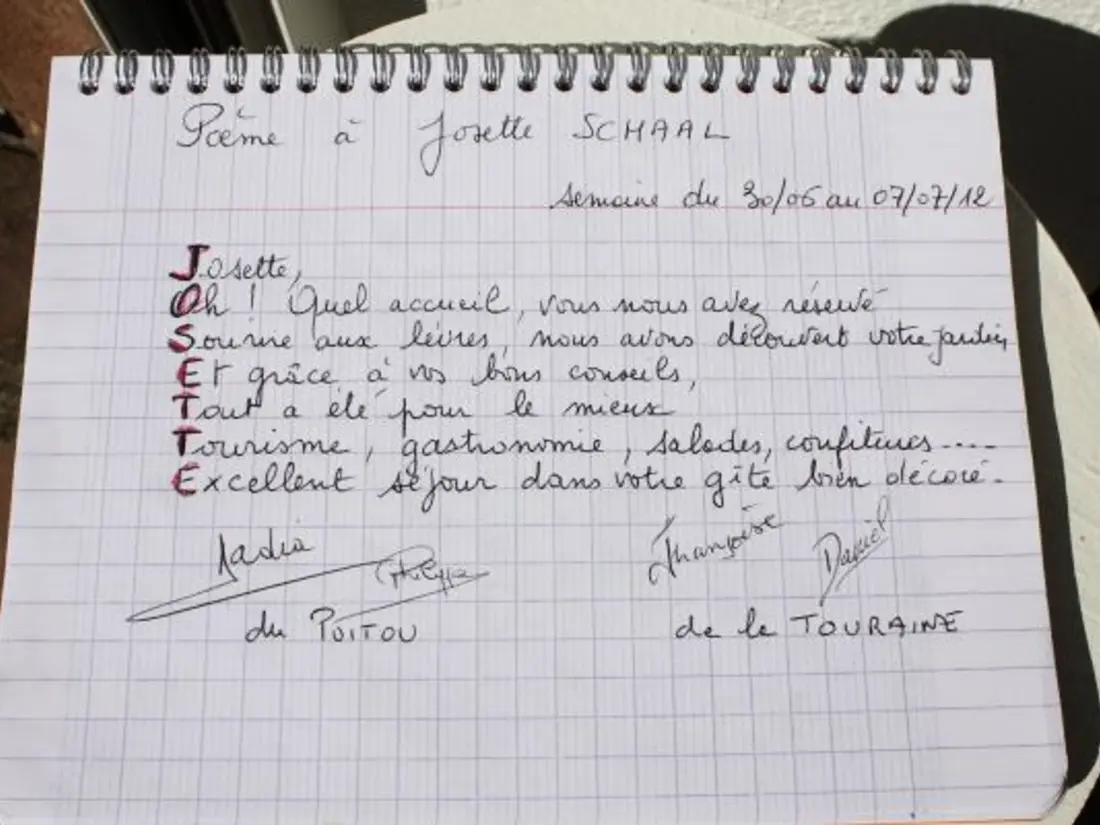 Poême à Josette SCHAAL
semaine du 30/06 au 07/07/12
Josette,
Oh ! Quel accueil, vous nous avez réservé
Sourire aux lèvres, nous avons découvert votre jardin,
Et grâce à vos bons conseils,
Tout a été pour le mieux
Tourisme, gastronomie, salades, confitures....
Excellent séjour dans votre gîte bien décoré.
Nadia Philippe Françoise Daniel
du POITOU de la TOURAINE